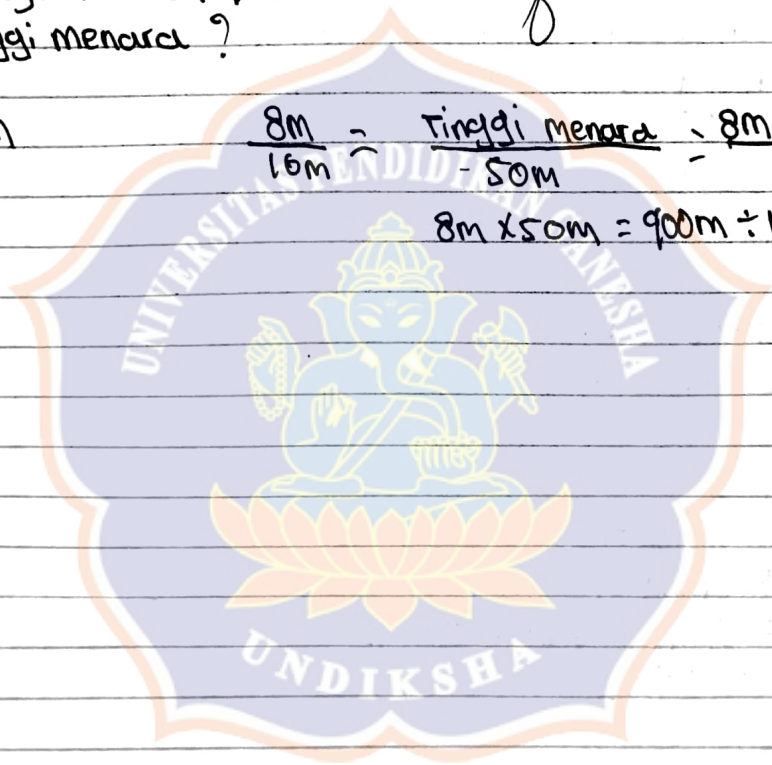 ggi menara ?
8m/16m = Tinggi menara/50m = 8m
8m x 50m = 900m ÷
UNIVERSITAS PENDIDIKAN GANESHA
UNDIKSHA